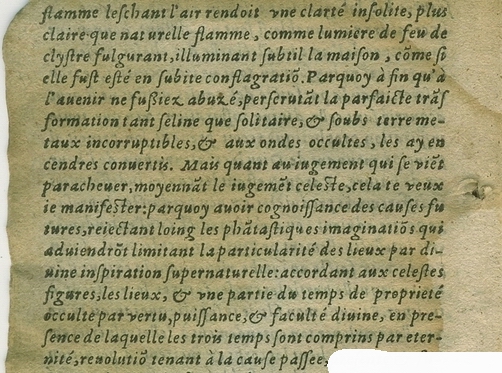 flamme leſchant l'air rendoit vne clarté inſolite, plus
claire que naturelle flamme, comme lumiere de feu de
clyſtre fulgurant, illuminant ſubtil la maiſon, cõme ſi
elle fuſt eſté en ſubite conflagratiõ. Parquoy à fin qu'à
l'auenir ne fußiez abuzé, perſcrutãt la parfaicte trãſ
formation tant ſeline que ſolitaire, & ſoubs terre me-
taux incorruptibles, & aux ondes occultes, les ay en
cendres conuertis. Mais quant au iugement qui ſe viẽt
paracheuer, moyennãt le iugemẽt celeſte, cela te veux
ie manifeſter: parquoy auoir cognoiſſance des cauſes fu
tures, reiectant loing les phãtaſtiques imaginatiõs qui
aduiendrõt limitant la particularité des lieux par di-
uine inſpiration ſupernaturelle: accordant aux celeſtes
figures, les lieux, & vne partie du temps de proprieté
occulte par vertu, puiſſance, & faculté diuine, en pre-
ſence de laquelle les trois temps ſont comprins par eter-
nité, reuolutiõ tenant à la cauſe paſſee,